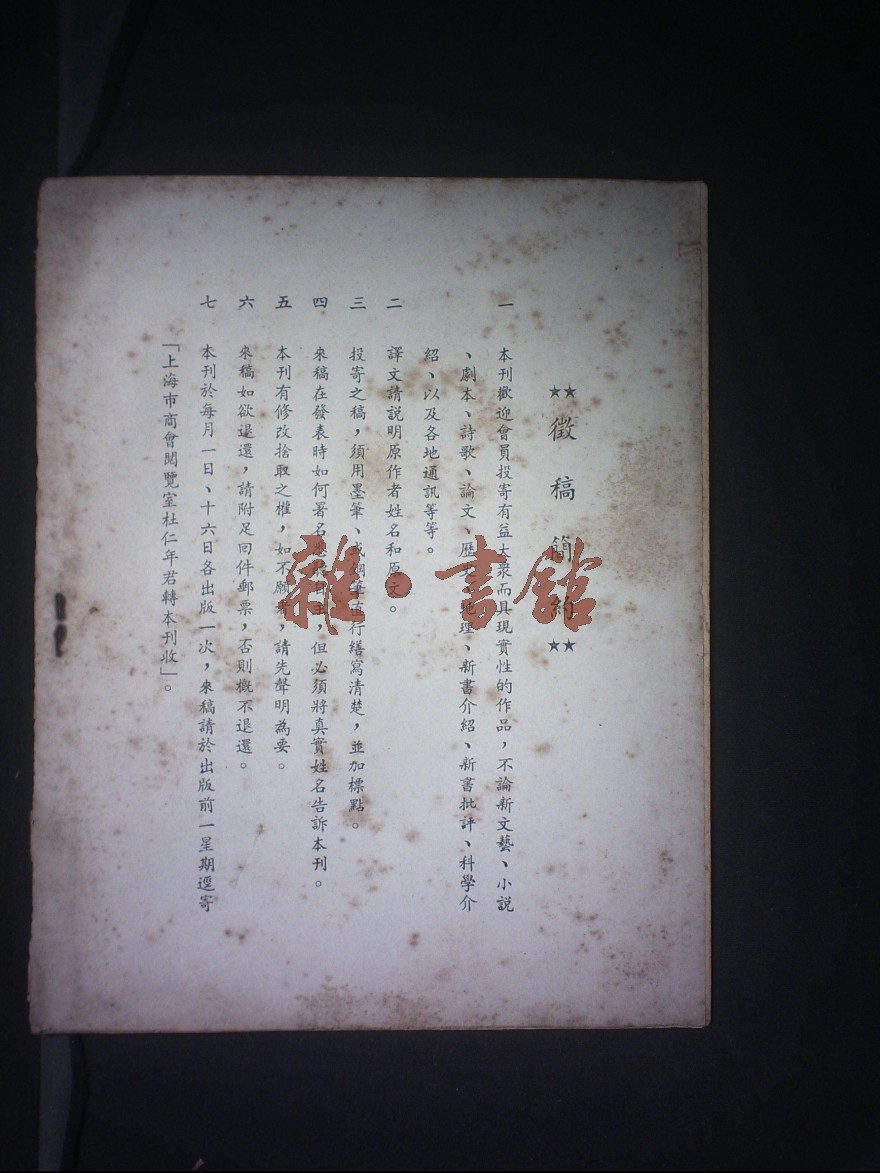 ★★徵稿簡約★★
一 本刊歡迎會員投寄有益大眾而具現實性的作品，不論新文藝、小說
、劇本、詩歌、論文、歷史、地理、新書介紹、新書批評、科學介
紹、以及各地通訊等等。
二 譯文請説明原作者姓名和原文。
三 投寄之稿，須用墨筆、或鋼筆直行繕寫清楚，並加標點。
四 來稿在發表時如何署名悉聽自主，但必須將真實姓名告訴本刊。
五 本刊有修改捨取之權，如不願者，請先聲明為要。
六 來稿如欲退還，請附足回件郵票，否則概不退還。
七 本刊於每月一日、十六日各出版一次，來稿請於出版前一星期逕寄
「上海市商會閱覽室杜仁年君轉本刊收」。
雜·書館